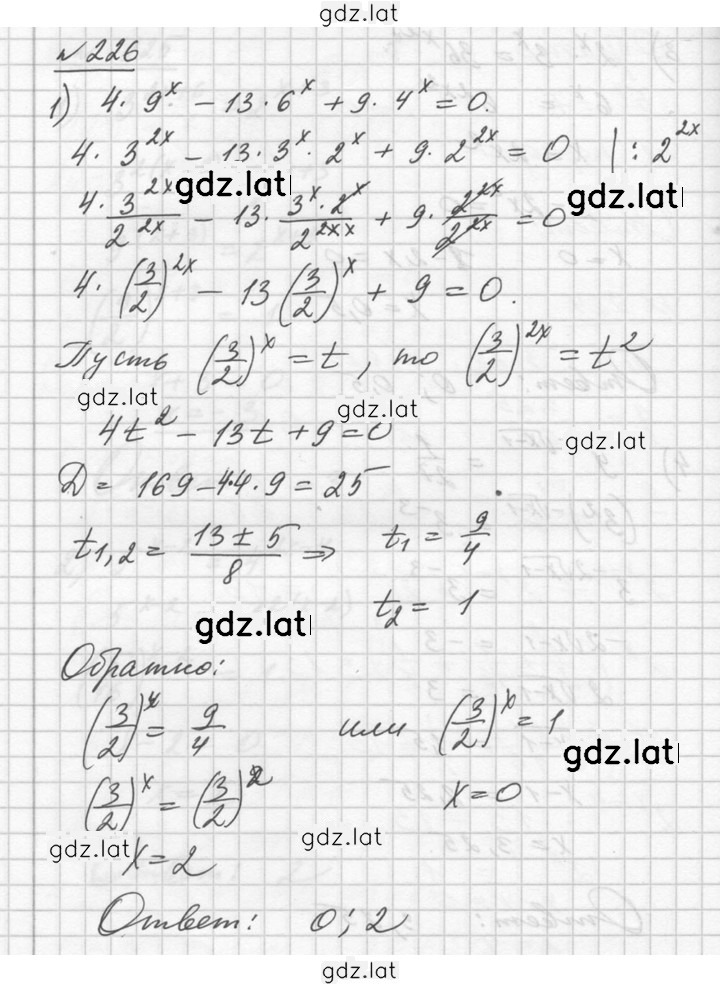 gdz.lat
№ 226
1) 4 · 9^x − 13 · 6^x + 9 · 4^x = 0.
4 · 3^{2x} − 13 · 3^x · 2^x + 9 · 2^{2x} = 0 | : 2^{2x}
gdz.lat gdz.lat
4 · 3^{2x}/2^{2x} − 13 · 3^x · 2^x/2^{2xx} + 9 · 2^{2x}/2^{2x} = 0
4 · (3/2)^{2x} − 13 (3/2)^x + 9 = 0.
Пусть (3/2)^x = t, то (3/2)^{2x} = t^2
gdz.lat gdz.lat
4t^2 − 13t + 9 = 0
gdz.lat
D = 169 − 4·4·9 = 25
t_{1,2} = (13 ± 5)/8 ⇒ t_1 = 9/4
t_2 = 1
gdz.lat
Обратно:
(3/2)^x = 9/4 или (3/2)^x = 1
gdz.lat
(3/2)^x = (3/2)^2 x = 0
gdz.lat gdz.lat
x = 2
Ответ: 0; 2
gdz.lat